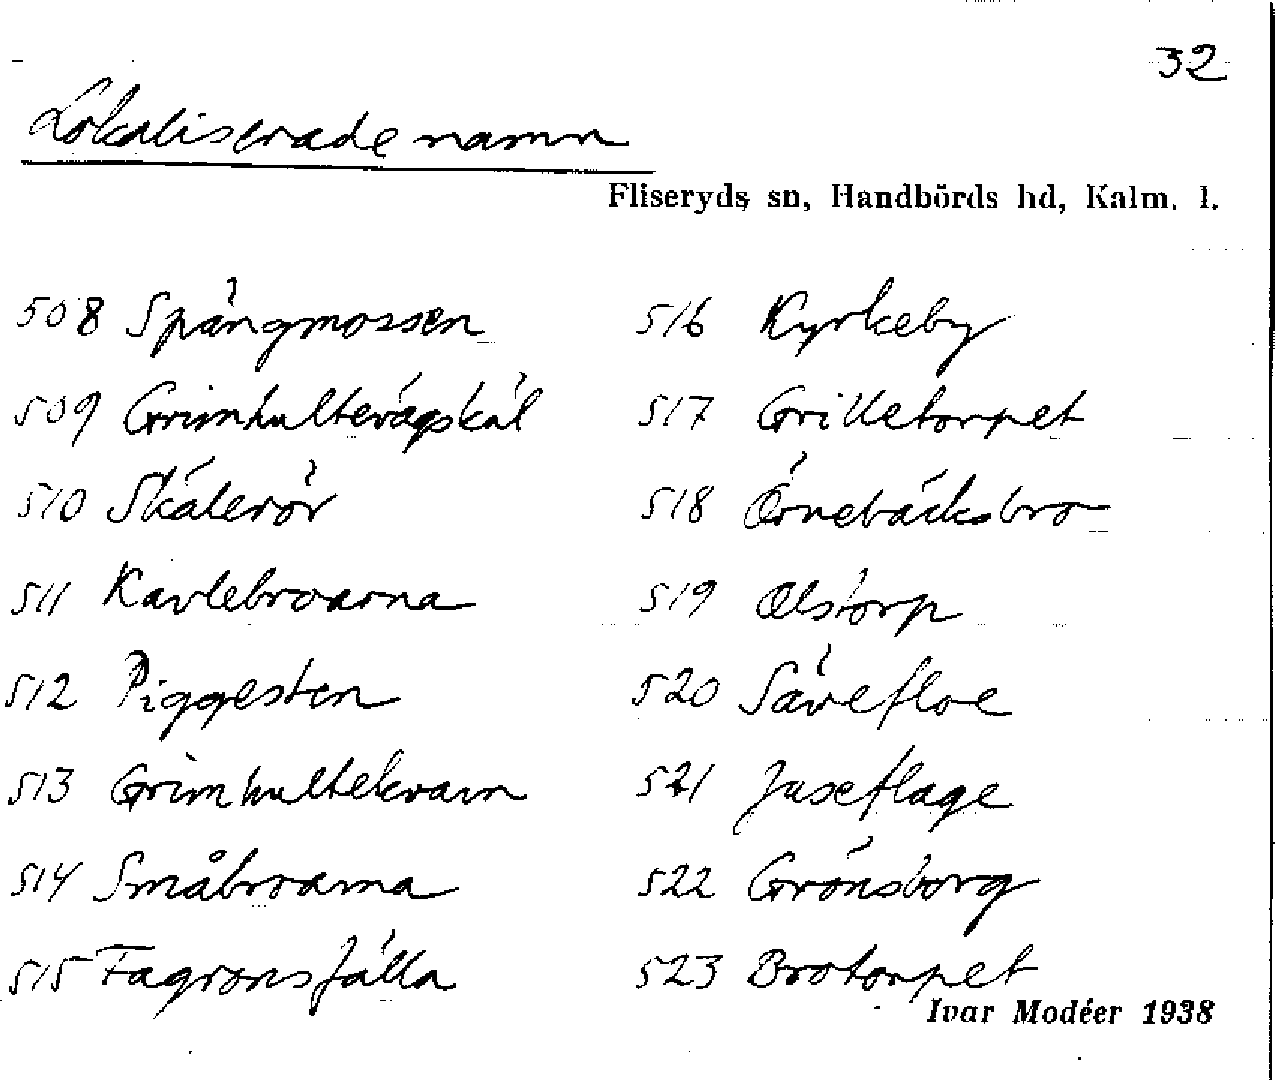 32
Lokaliserade namn
Fliseryds sn, Handbörds hd, Kalm. l.
508 Spångmossen
509 Grimhultevägskäl
510 Skälerör
511 Kavlebroarna
512 Piggesten
513 Grimhultekvarn
514 Småbroarna
515 Fagronsfälla
516 Kyrkeby
517 Grilletorpet
518 Örnebäcksbro
519 Alstorp
520 Sävefloe
521 Juseflage
522 Grönsborg
523 Brotorpet
Ivar Modéer 1938